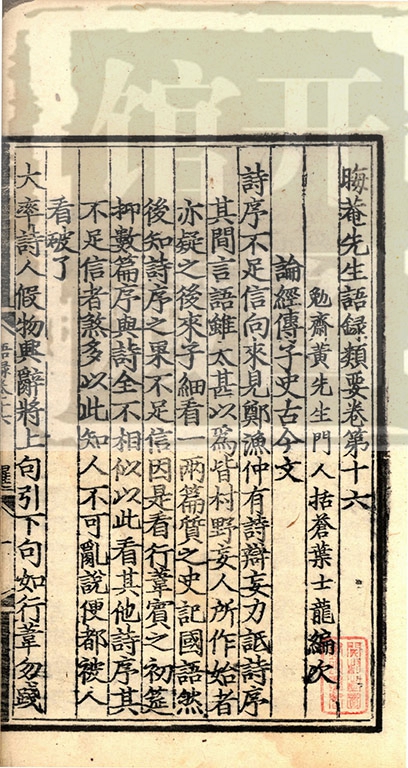 晦菴先生語録類要卷第十六
勉齋黄先生門人括蒼葉士龍編次
論經傳子史古今文
詩序不足信向來見鄭漁仲有詩辯妄力詆詩序
其間言語雖太甚以爲皆村野妄人所作始者
亦疑之後來子細看一兩篇質之史記國語然
後知詩序之果不足信因是看行葦賓之初筵
抑數篇序與詩全不相似以此看其他詩序其
不足信者煞多以此知人不可亂説便都被人
看破了
大率詩人假物興辭將上句引下句如行葦勿踐
語录卷十六
开
馆